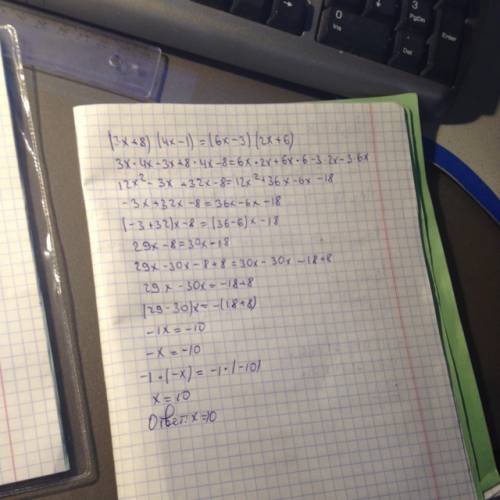 0
Ins
3
PgDn
Del
Enter
(3x+8) (4x-1) = (6x-3) (2x+6)
3x·4x-3x+8·4x-8=6x·2x+6x·6-3·2x-3·6x
12x²-3x+32x-8=12x²+36x-6x-18
-3x+32x-8=36x-6x-18
(-3+32)x-8=(36-6)x-18
29x-8=30x-18
29x-30x-8+8=30x-30x-18+8
29x-30x=-18+8
(29-30)x=-(18+8)
-1x=-10
-x=-10
-1·(-x)=-1·(-10)
x=10
Ответ: x=10